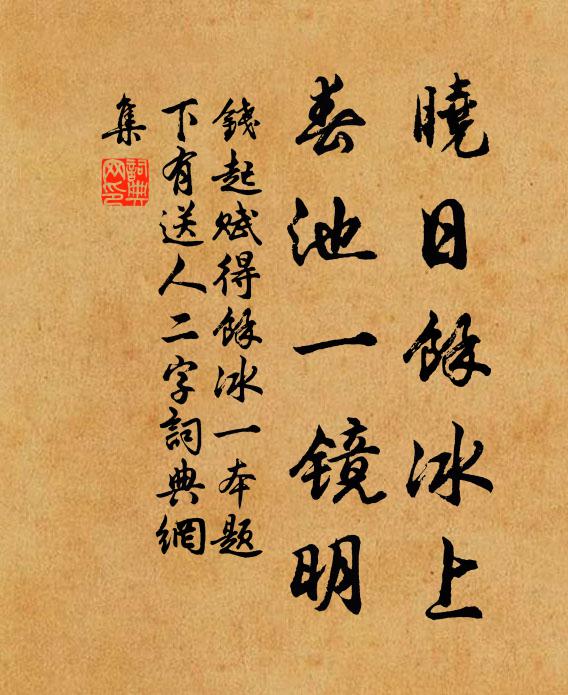 曉日餘冰上
春池一鏡明
錢起賦得餘冰一本題
下有送人二字詞典網
集
詞典
网印